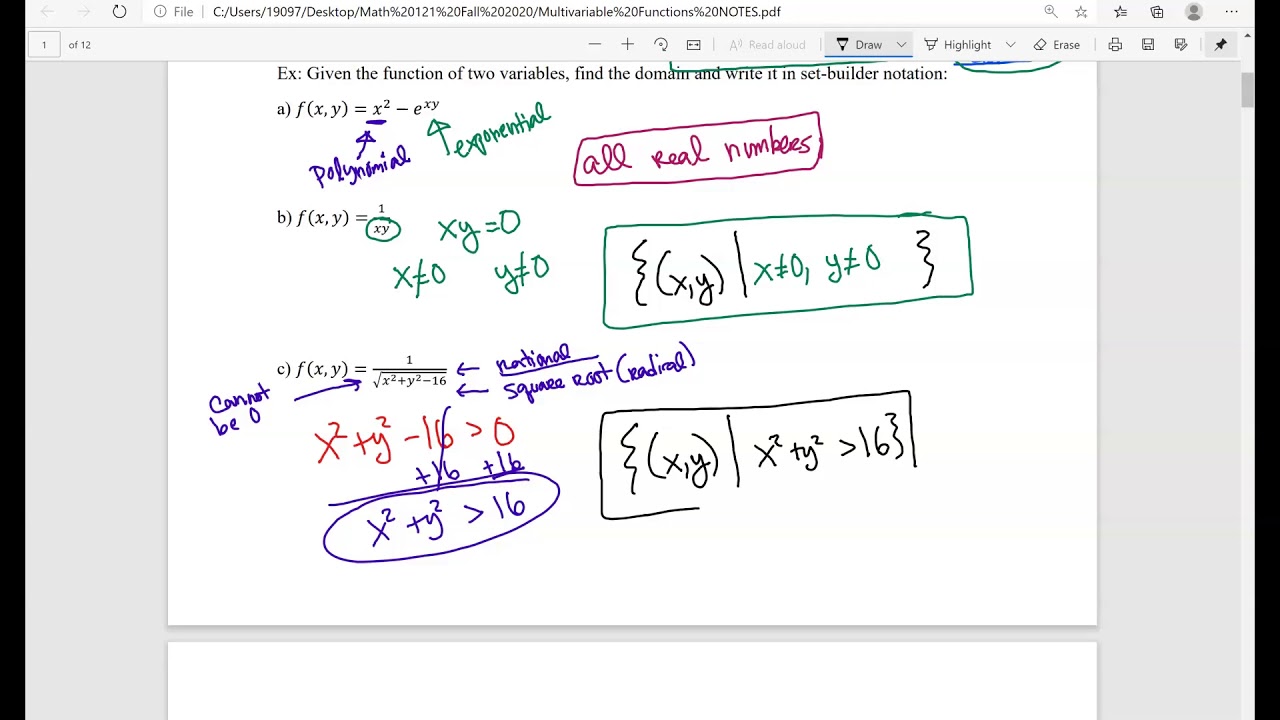 File C:/Users/19097/Desktop/Math%20121%20Fall%202020/Multivariable%20Functions%20NOTES.pdf
1 of 12 Read aloud Draw Highlight Erase
Ex: Given the function of two variables, find the domain and write it in set-builder notation:
a) f(x, y) = x² − e^xy
polynomial
exponential
all real numbers
b) f(x, y) = 1/xy
xy = 0
x≠0 y≠0
{(x,y) | x≠0, y≠0 }
c) f(x, y) = 1/√(x²+y²−16)
← rational
← square root (radical)
cannot
be 0
x² + y² - 16 > 0
+16 +16
x² + y² > 16
{(x,y) | x² + y² > 16}